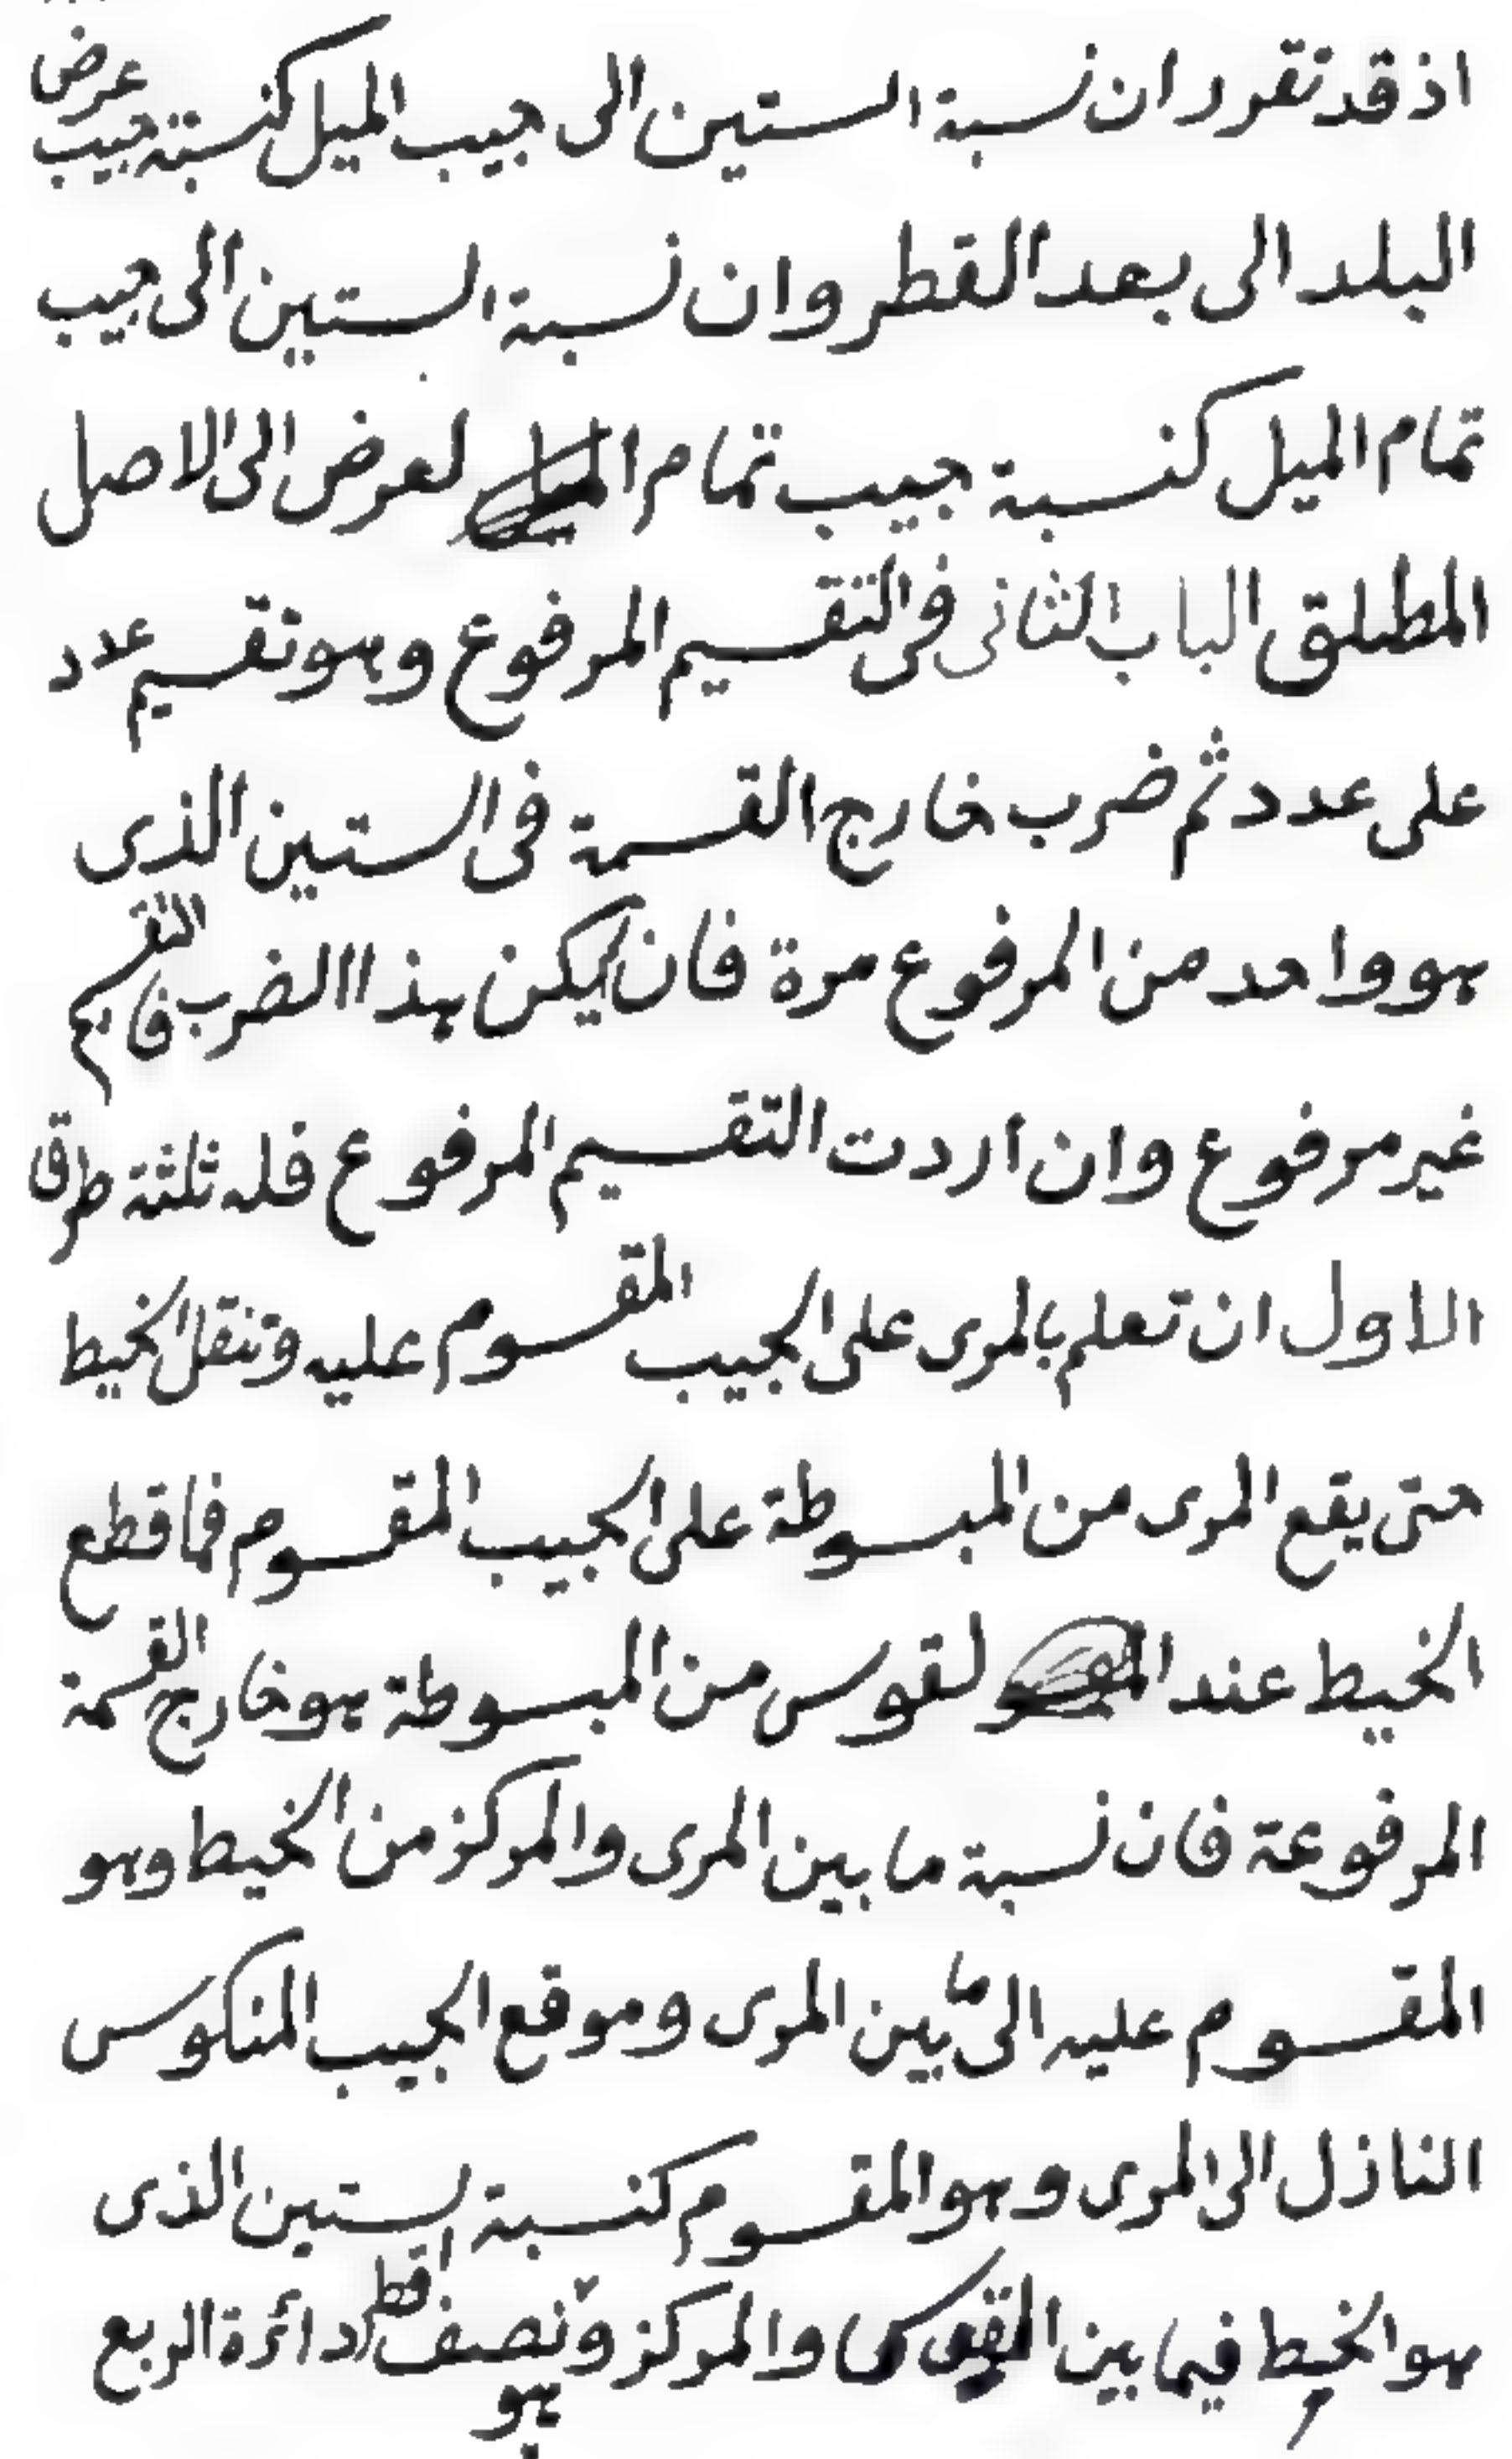 اذ قد تقرر ان نسبة الستين الى جيب الميل كنسبة جيب عرض
البلد الى بعد القطر وان نسبة الستين الى جيب
تمام الميل كنسبة جيب تمام العرض الى الاصل
المطلق الباب الثانى فى التقسيم المرفوع وهو تقسيم عدد
على عدد ثم ضرب خارج القسمة فى الستين الذى
هو واحد من المرفوع مرة فان لم يكن هذا الضرب فالتقسيم
غير مرفوع وان اردت التقسيم المرفوع فله ثلثة طرق
الاول ان تعلم بالمرى على الجيب المقسوم عليه وتنقل الخيط
حتى يقع المرى من المبسوطة على الجيب المقسوم فما قطع
الخيط عند القوس من المبسوطة هو خارج القسمة
المرفوعة فان نسبة ما بين المرى والمركز من الخيط وهو
المقسوم عليه الى ما بين المرى وموقع الجيب المنكوس
النازل الى المرى وهو المقسوم كنسبة الستين الذى
هو الخيط فيما بين القوس والمركز وهو نصف قطر دائرة الربع